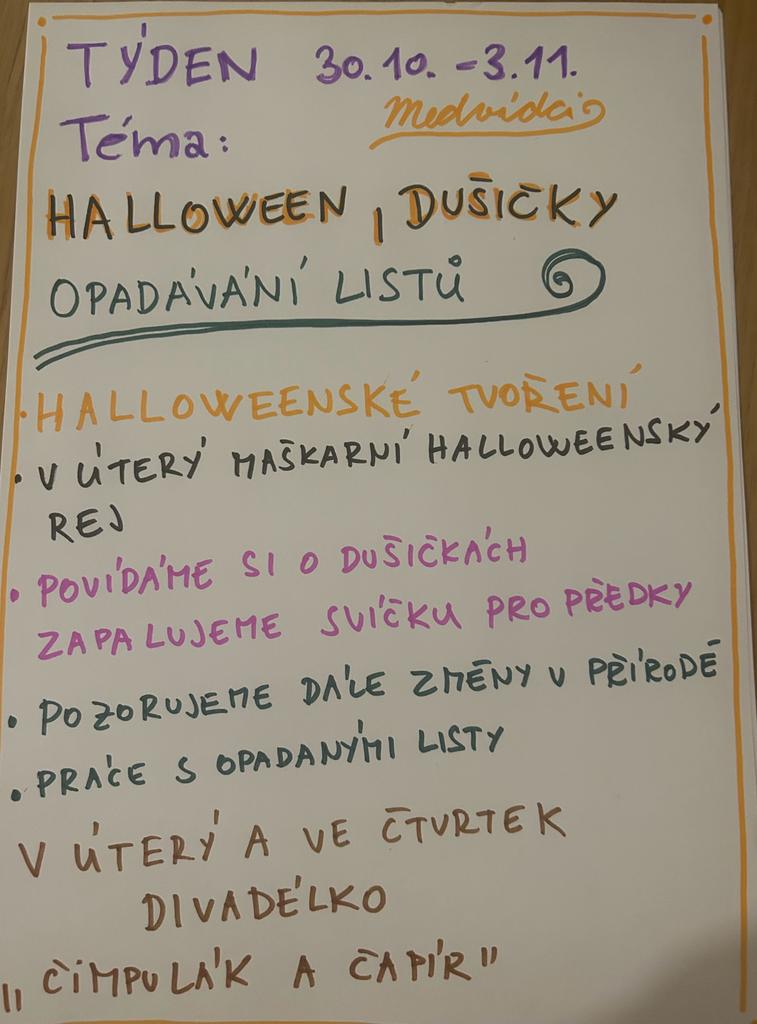 TÝDEN 30.10. - 3.11.
Medvídci
Téma:
HALLOWEEN, DUŠIČKY
OPADÁVÁNÍ LISTŮ
• HALLOWEENSKÉ TVOŘENÍ
• V ÚTERÝ MAŠKARNÍ HALLOWEENSKÝ
REJ
• POVÍDÁME SI O DUŠIČKÁCH
ZAPALUJEME SVÍČKU PRO PŘEDKY
• POZORUJEME DÁLE ZMĚNY V PŘÍRODĚ
• PRÁCE S OPADANÝMI LISTY
V ÚTERÝ A VE ČTVRTEK
DIVADÉLKO
„ČIMPULÁK A ČAPÍR"